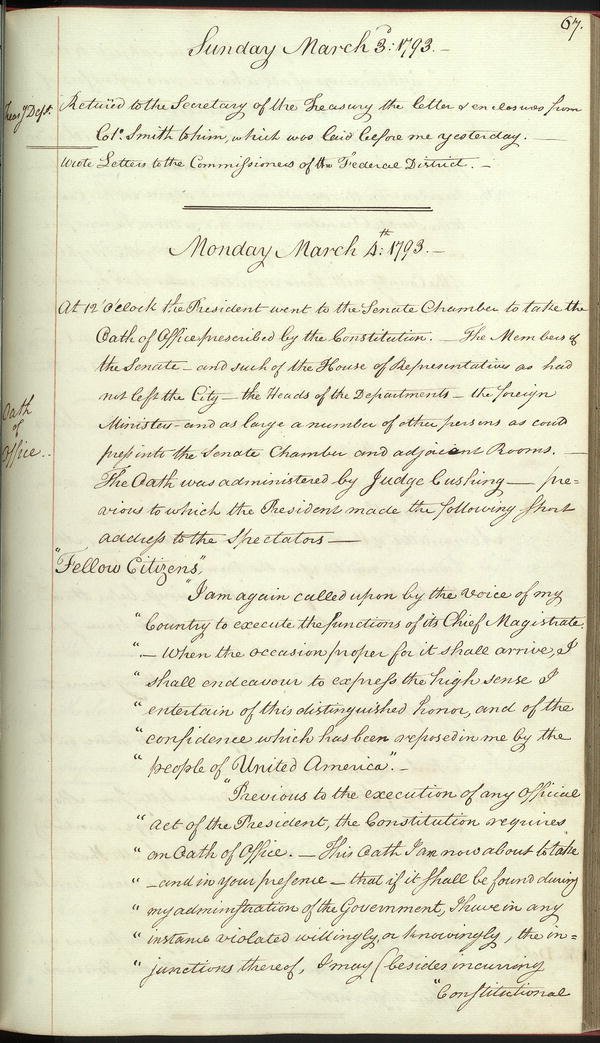 67.
Sunday March 3d: 1793.—
Treasy Dept.
Retur'd to the Secretary of the Treasury the letter & enclosures from
Colo. Smith to him, which was laid before me yesterday. —
Wrote Letters to the Commissioners of the Federal District. —
Monday March 4th: 1793.—
At 12 o'clock the President went to the Senate Chamber to take the
Oath of Office prescribed by the Constitution. — The Members of
the Senate — and such of the House of Representatives as had
not left the City — the Heads of the Departments — the foreign
Oath
of
Office..
Minister — and as large a number of other persons as could
press into the Senate Chamber and adjoicent Rooms. —
The Oath was administered by Judge Cushing — pre=
vious to which the President made the following short
address to the Spectators —
"Fellow Citizens",
"I am again called upon by the voice of my
" Country to execute the functions of its Chief Magistrate.
" — When the occasion proper for it shall arrive, I
" shall endeavour to express the high sense I
" entertain of this distinguished honor, and of the
" confidence which has been reposed in me by the
" people of United America". —
"Previous to the execution of any Official
" act of the President, the Constitution requires
" an Oath of Office. — This Oath I am now about to take
" — and in your presence — that if it shall be found during
" my administration of the Government, I have in any
" instance violated willingly, or knowingly, the in=
" junctions thereof, I may (besides incurring
"Constitutional